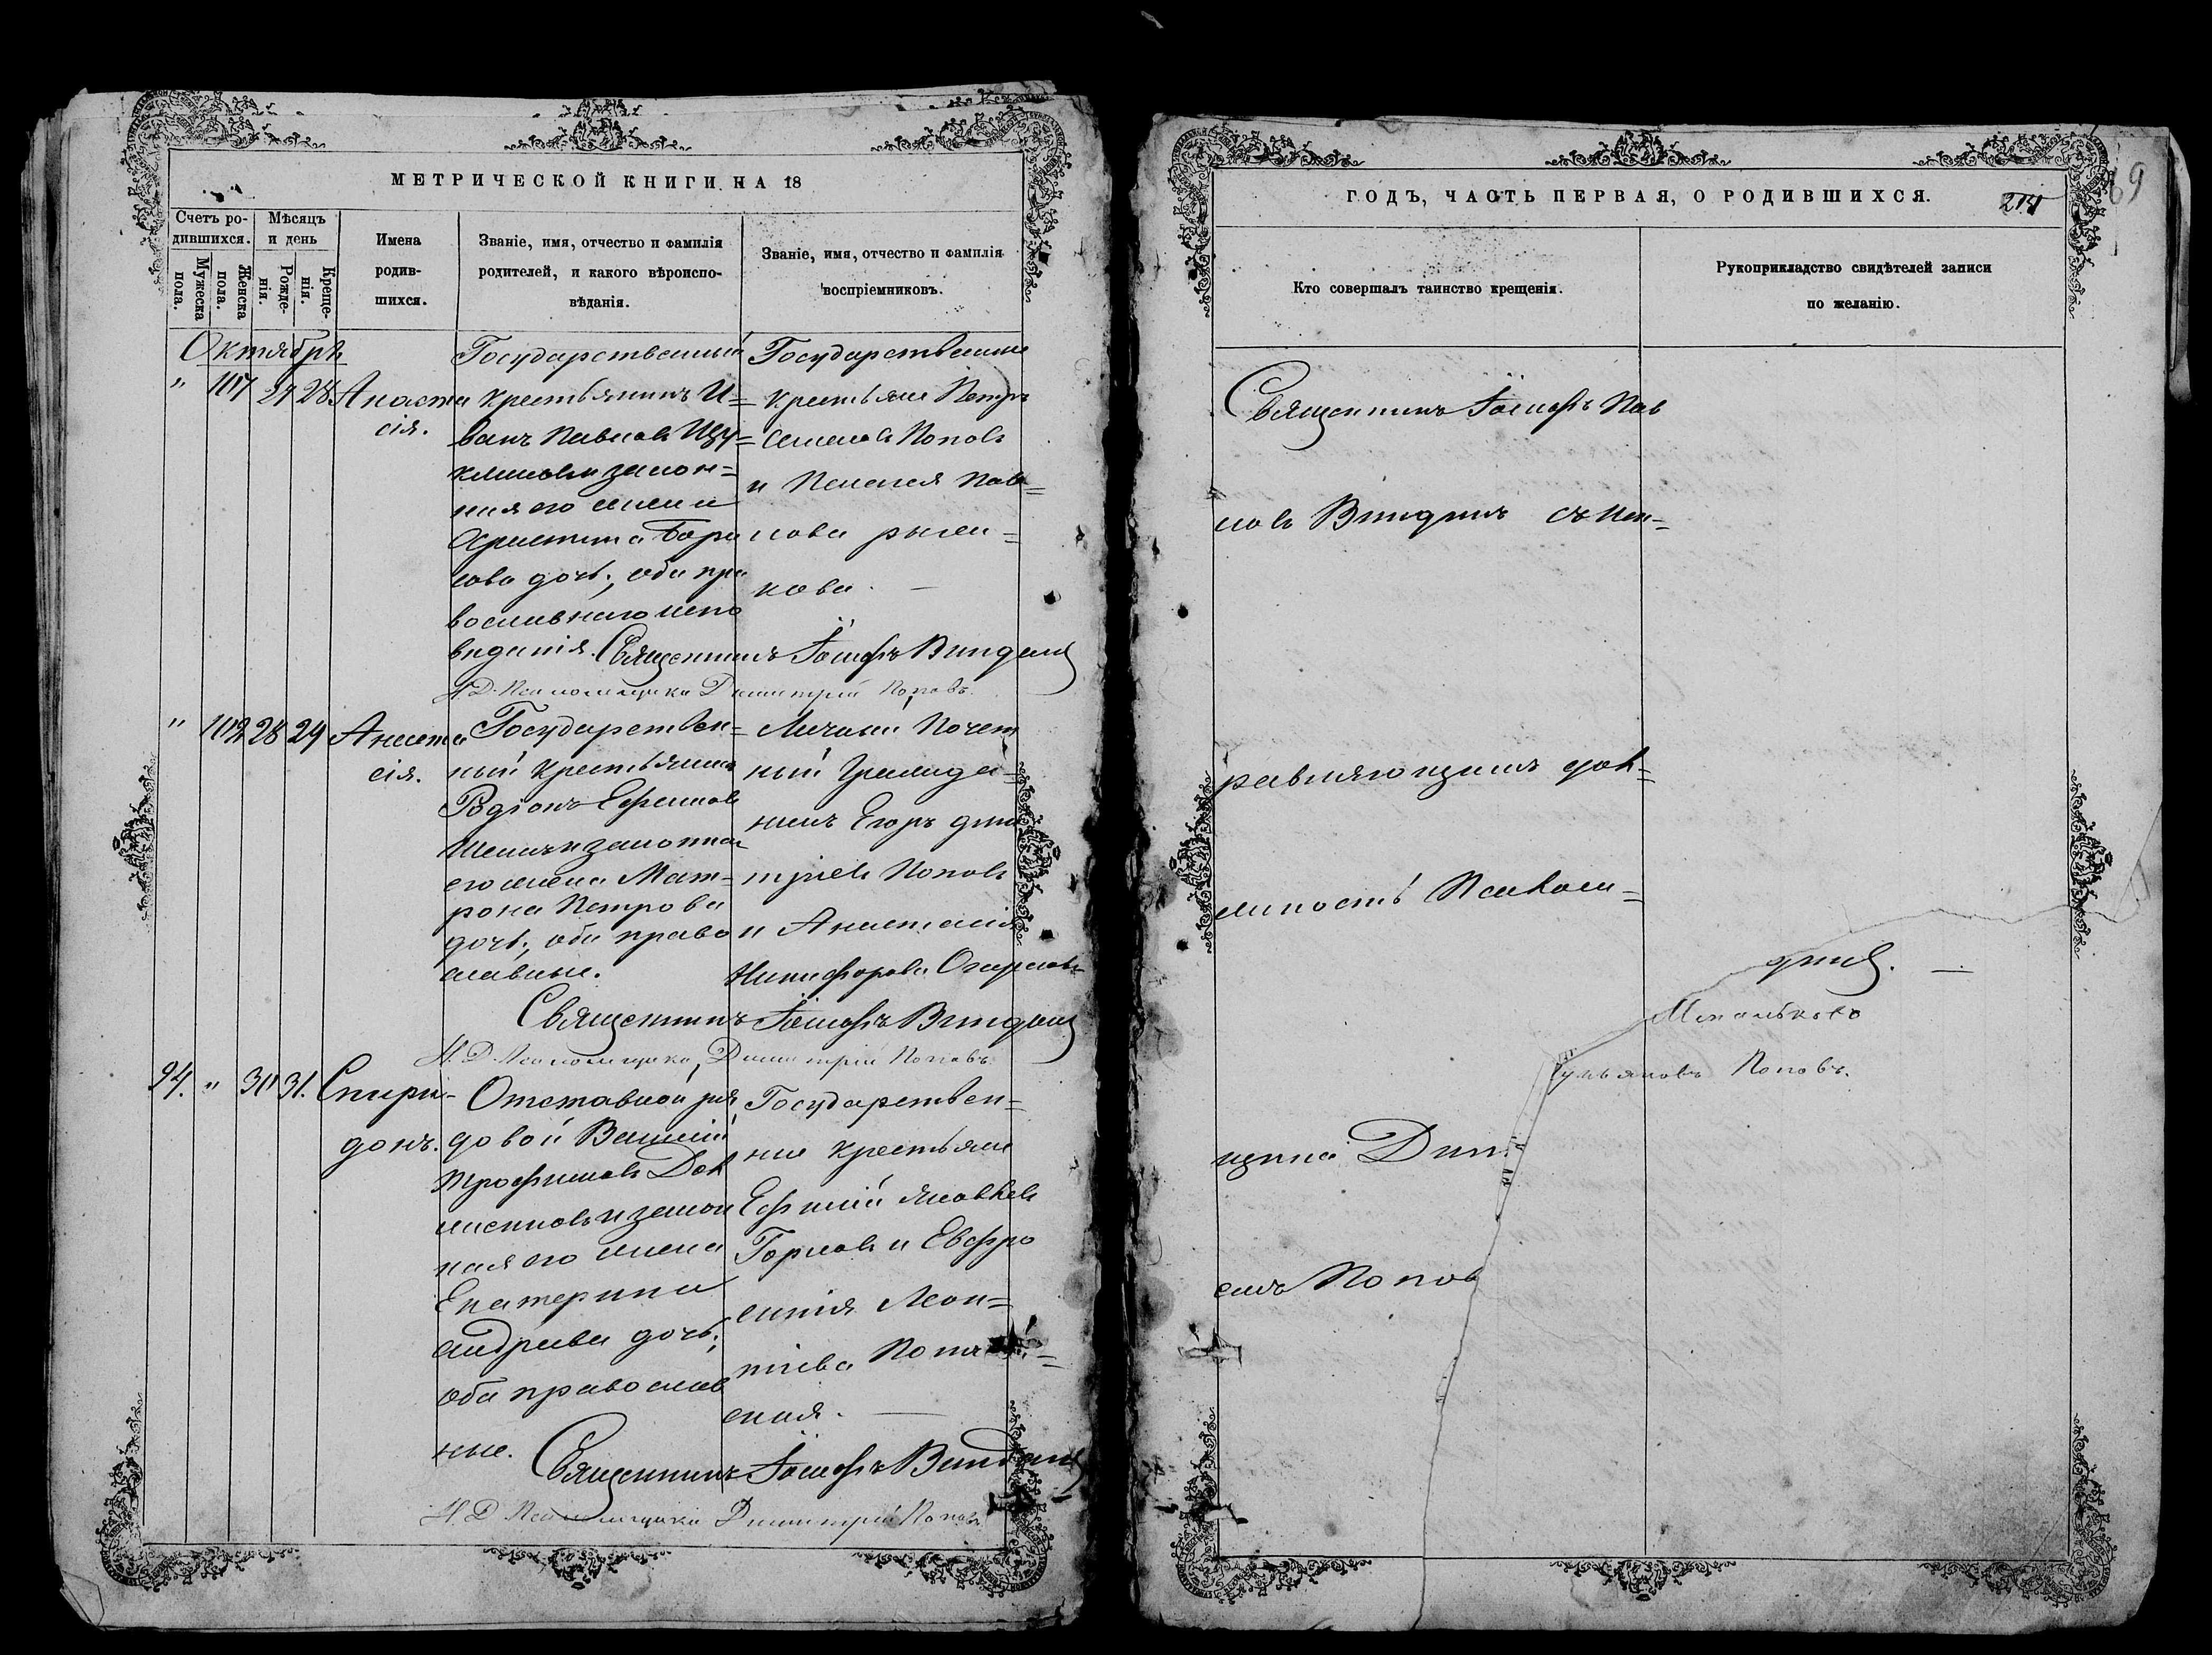 МЕТРИЧЕСКОЙ КНИГИ НА 18
Счетъ ро-
дившихся.
Мѣсяцъ
и день
Мужеска
пола.
Женска
пола.
Рожде-
нія.
Креще-
нія.
Имена
родив-
шихся.
Званіе, имя, отчество и фамилія
родителей, и какого вѣроиспо-
вѣданія.
Званіе, имя, отчество и фамилія
воспріемниковъ.
Октябрь
" 27 28 Анаста
сія.
Государственный
крестьянинъ И=
ванъ Павловъ
и закон=
ная его жена
Христина Бори
сова дочь; оба пра
вославнаго испо
вѣданія.
Государственные
крестьяне Петръ
Семеновъ Поповъ
и Пав=
лова
кова. —
Священникъ Іосифъ
И. Д. Псаломщика Димитрій Поповъ.
" 28 29 Анаста
сія.
Государствен=
ный крестьянинъ
Родіонъ
и законная
его жена Мат=
рона Петрова
дочь; оба право
славные.
Личный Почет
ный Гражда=
нинъ Егоръ Дми
тріевъ Поповъ
и Анастасія
Никифорова
Священникъ Іосифъ
И. Д. Псаломщика Димитрій Поповъ
94. " 31 31. Спири-
донъ.
Отставной ря
довой Василій
Трофимовъ
и закон
ная его жена
Екатерина
Андреева дочь;
оба православ
ные.
Государствен=
ные крестьяне
Ефимій Яковлевъ
и Евфро
синія Леон=
тіева
ская. —
Священникъ Іосифъ
И. Д. Псаломщика Димитрій Поповъ
ГОДЪ, ЧАСТЬ ПЕРВАЯ, О РОДИВШИХСЯ.
69
Кто совершалъ таинство крещенія.
Рукоприкладство свидѣтелей записи
по желанію.
Священникъ Іосифъ Пав
ловъ съ исп=
равляющимъ дол=
жность Псалом=
щика Дим
емъ Попов
Поповъ.